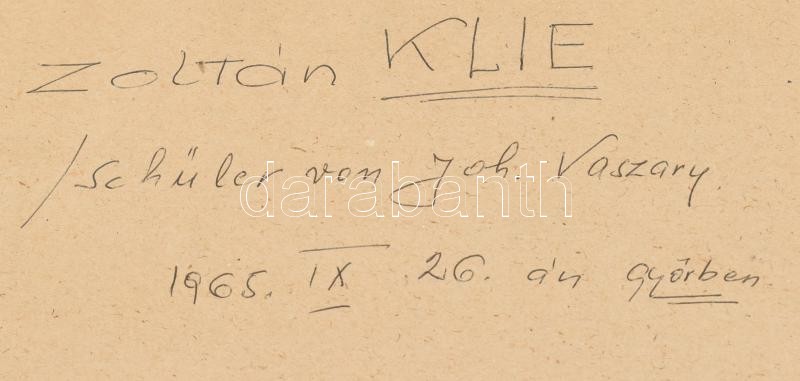 Zoltán KLIE
/Schüler von Joh. Vaszary.
darabanth
1965. IX 26. án Győrben